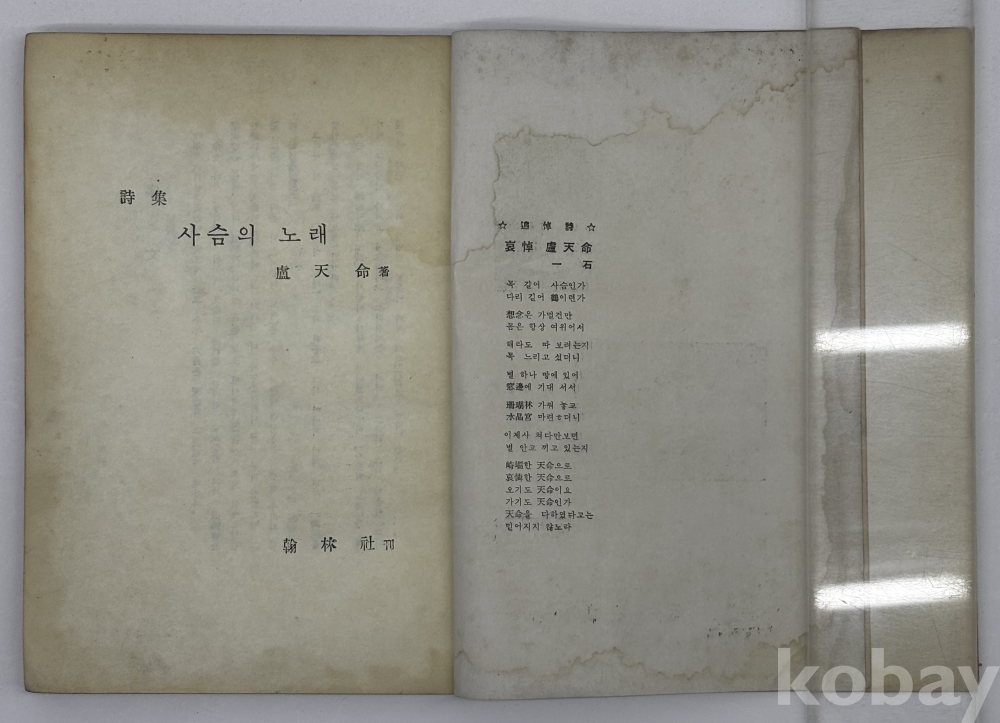 詩集
사슴의 노래
盧天命 著
翰林社 刊
☆ 追悼詩 ☆
哀悼 盧天命
一石
목 길어 사슴인가
다리 길어 鶴이런가
想念은 가벌건만
몸은 항상 여위어서
해라도 따 보려는지
목 느리고 섰더니
별 하나 맘에 있어
窓邊에 기대 서서
珊瑚林 가꿔 놓고
水晶宮 마련ㅎ더니
이제사 쳐다만보면
별 안고 끼고 있는지
崎嶇한 天命으로
哀傷한 天命으로
오기도 天命이요
가기도 天命인가
天命을 다하였다고는
믿어지지 않노라
kobay